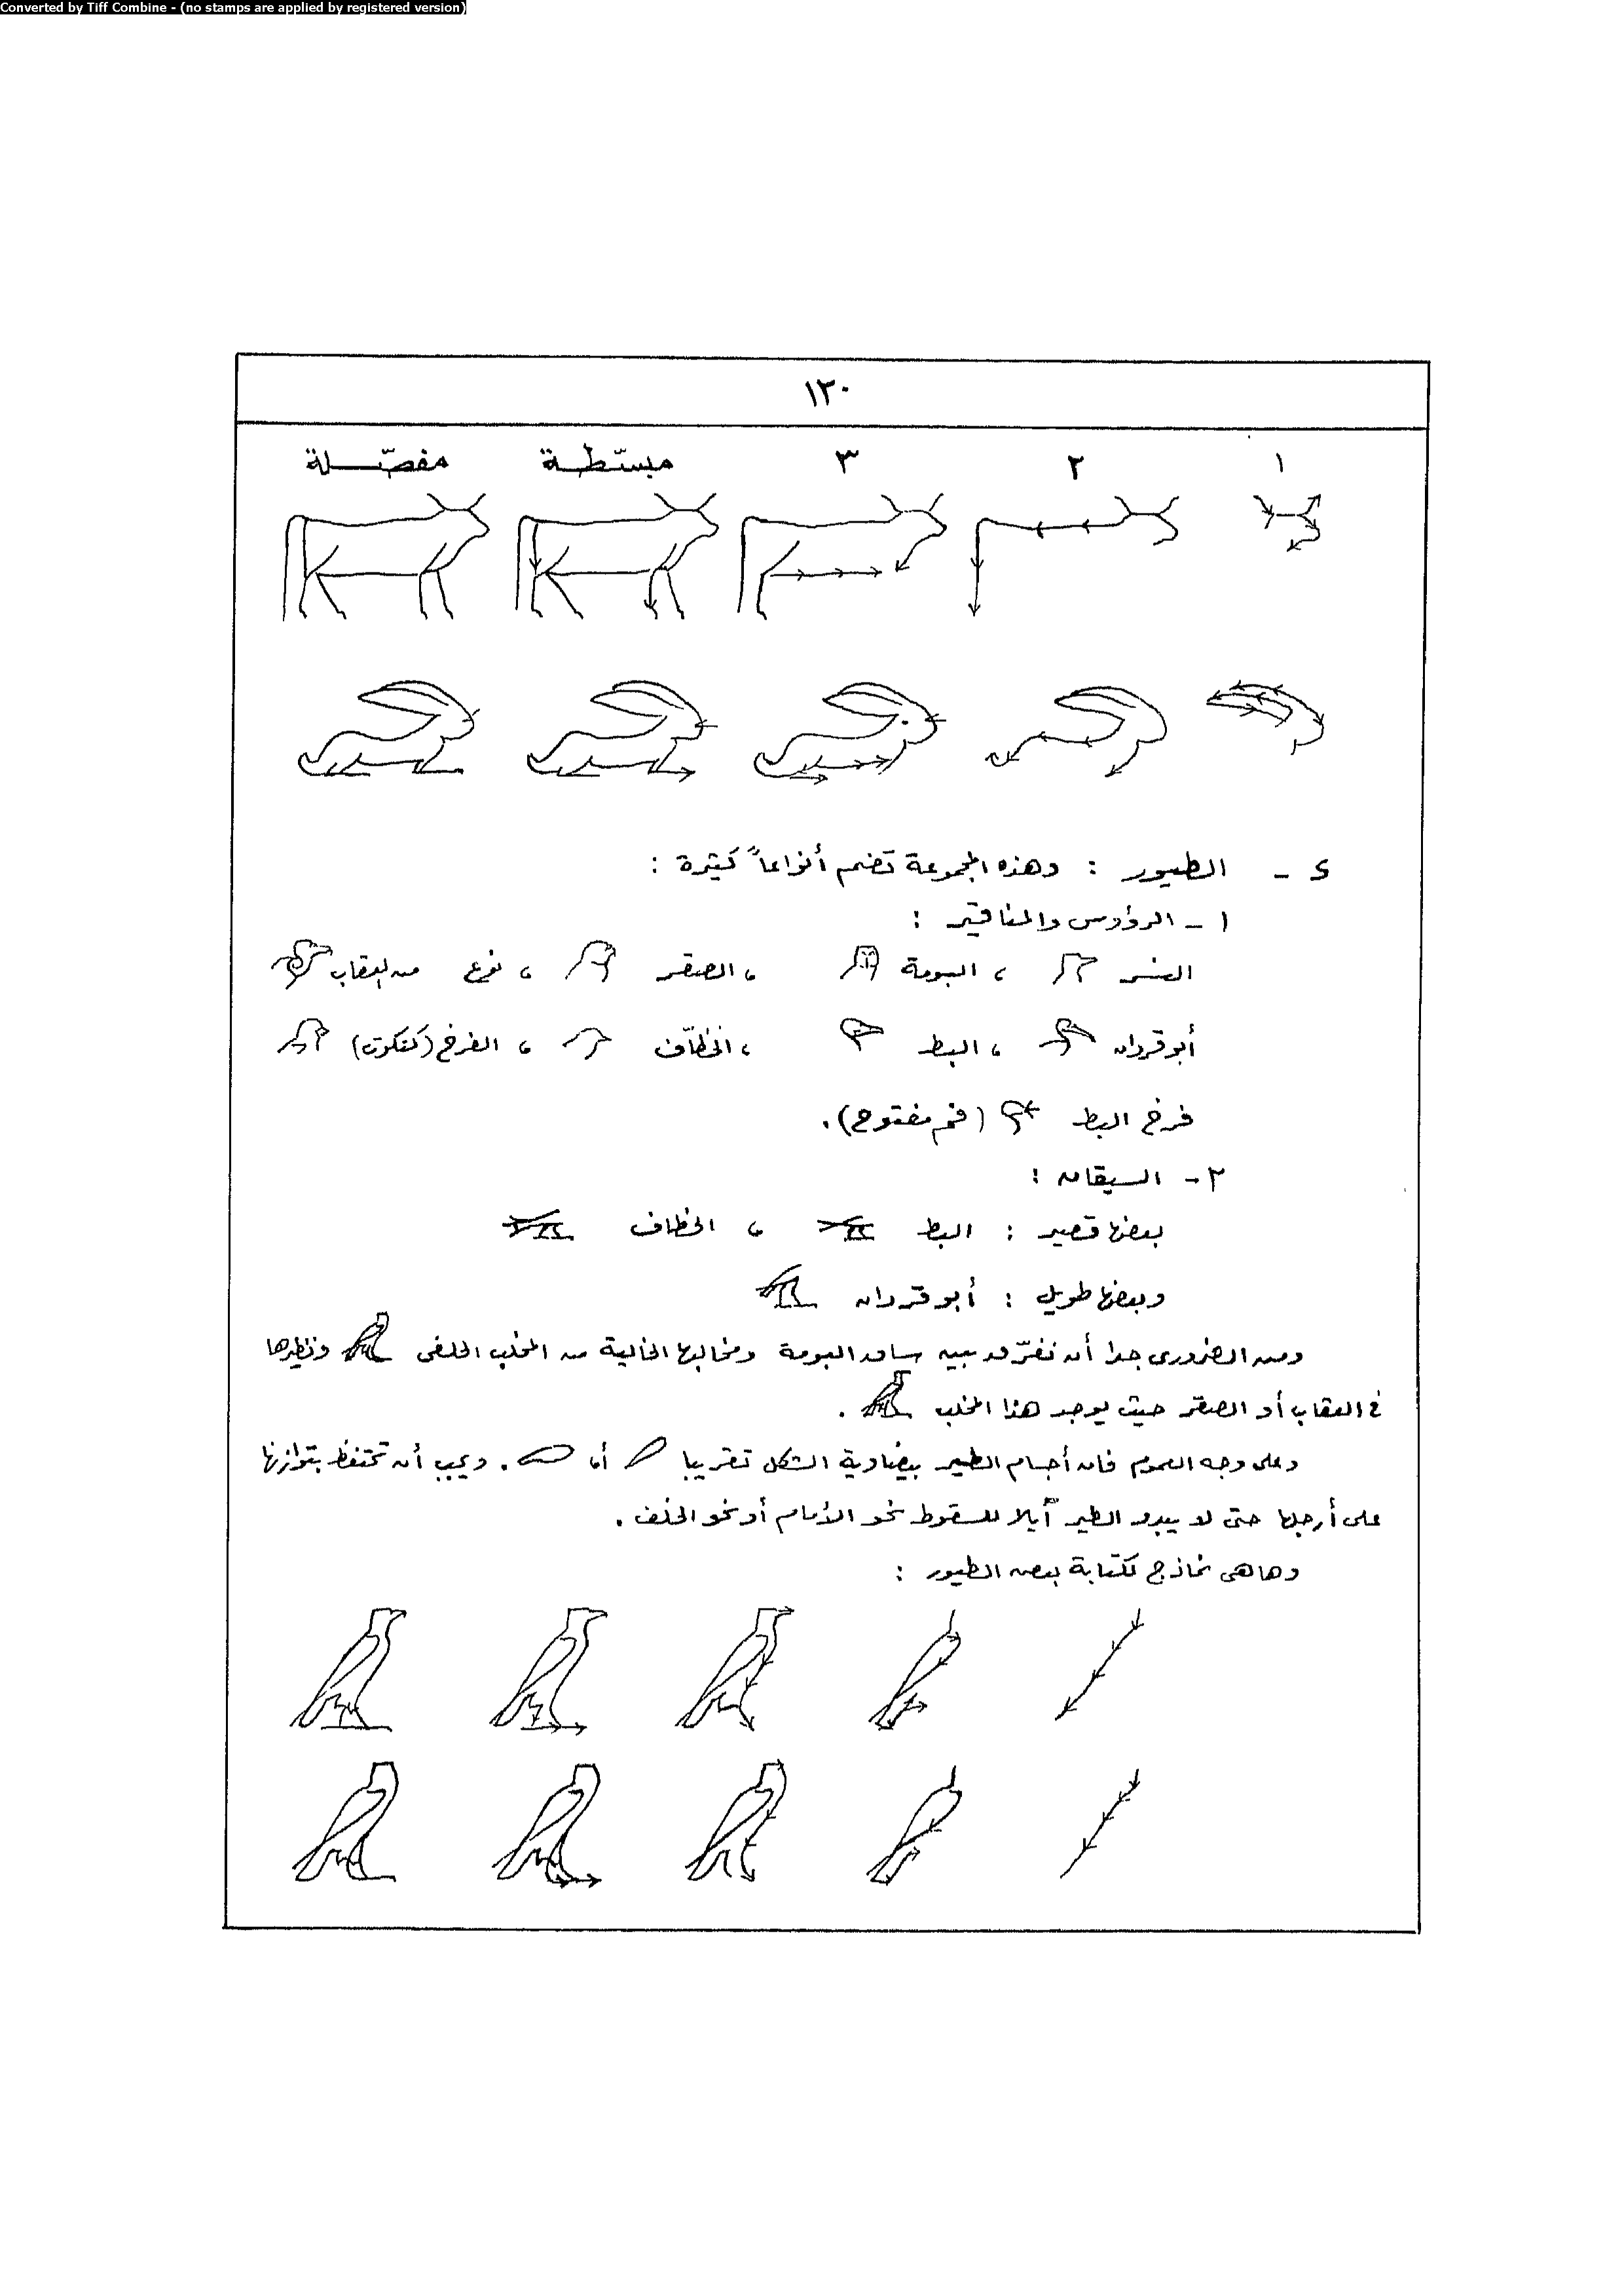 Converted by Tiff Combine - (no stamps are applied by registered version)
١٣٠
١ ٢ ٣ مبسّطة مفصّلة
٤ - الطيور : وهذه المجموعة تضم أنواعاً كثيرة :
١ - الرؤوس والمناقير :
النسر ، البومة ، الصقر ، نوع من العقاب
أبو قردان ، البط ، الخطّاف ، الفرخ (كتكوت)
فرخ البط (فم مفتوح) .
٢ - السيقان :
بعضها قصير : البط ، الخطاف
وبعضها طويل : أبو قردان
ومن الضرورى جدا أن نفرّق بين ساق البومة ومخالبها الخالية من المخلب الخلفى ونظيرها
فى العقاب أو الصقر حيث يوجد هذا المخلب .
وعلى وجه العموم فان أجسام الطير بيضاوية الشكل تقريبا أو . ويجب أن تحتفظ بتوازنها
على أرجلها حتى لا يبدو الطير آيلا للسقوط نحو الأمام أو نحو الخلف .
وها هى نماذج لكتابة بعض الطيور :